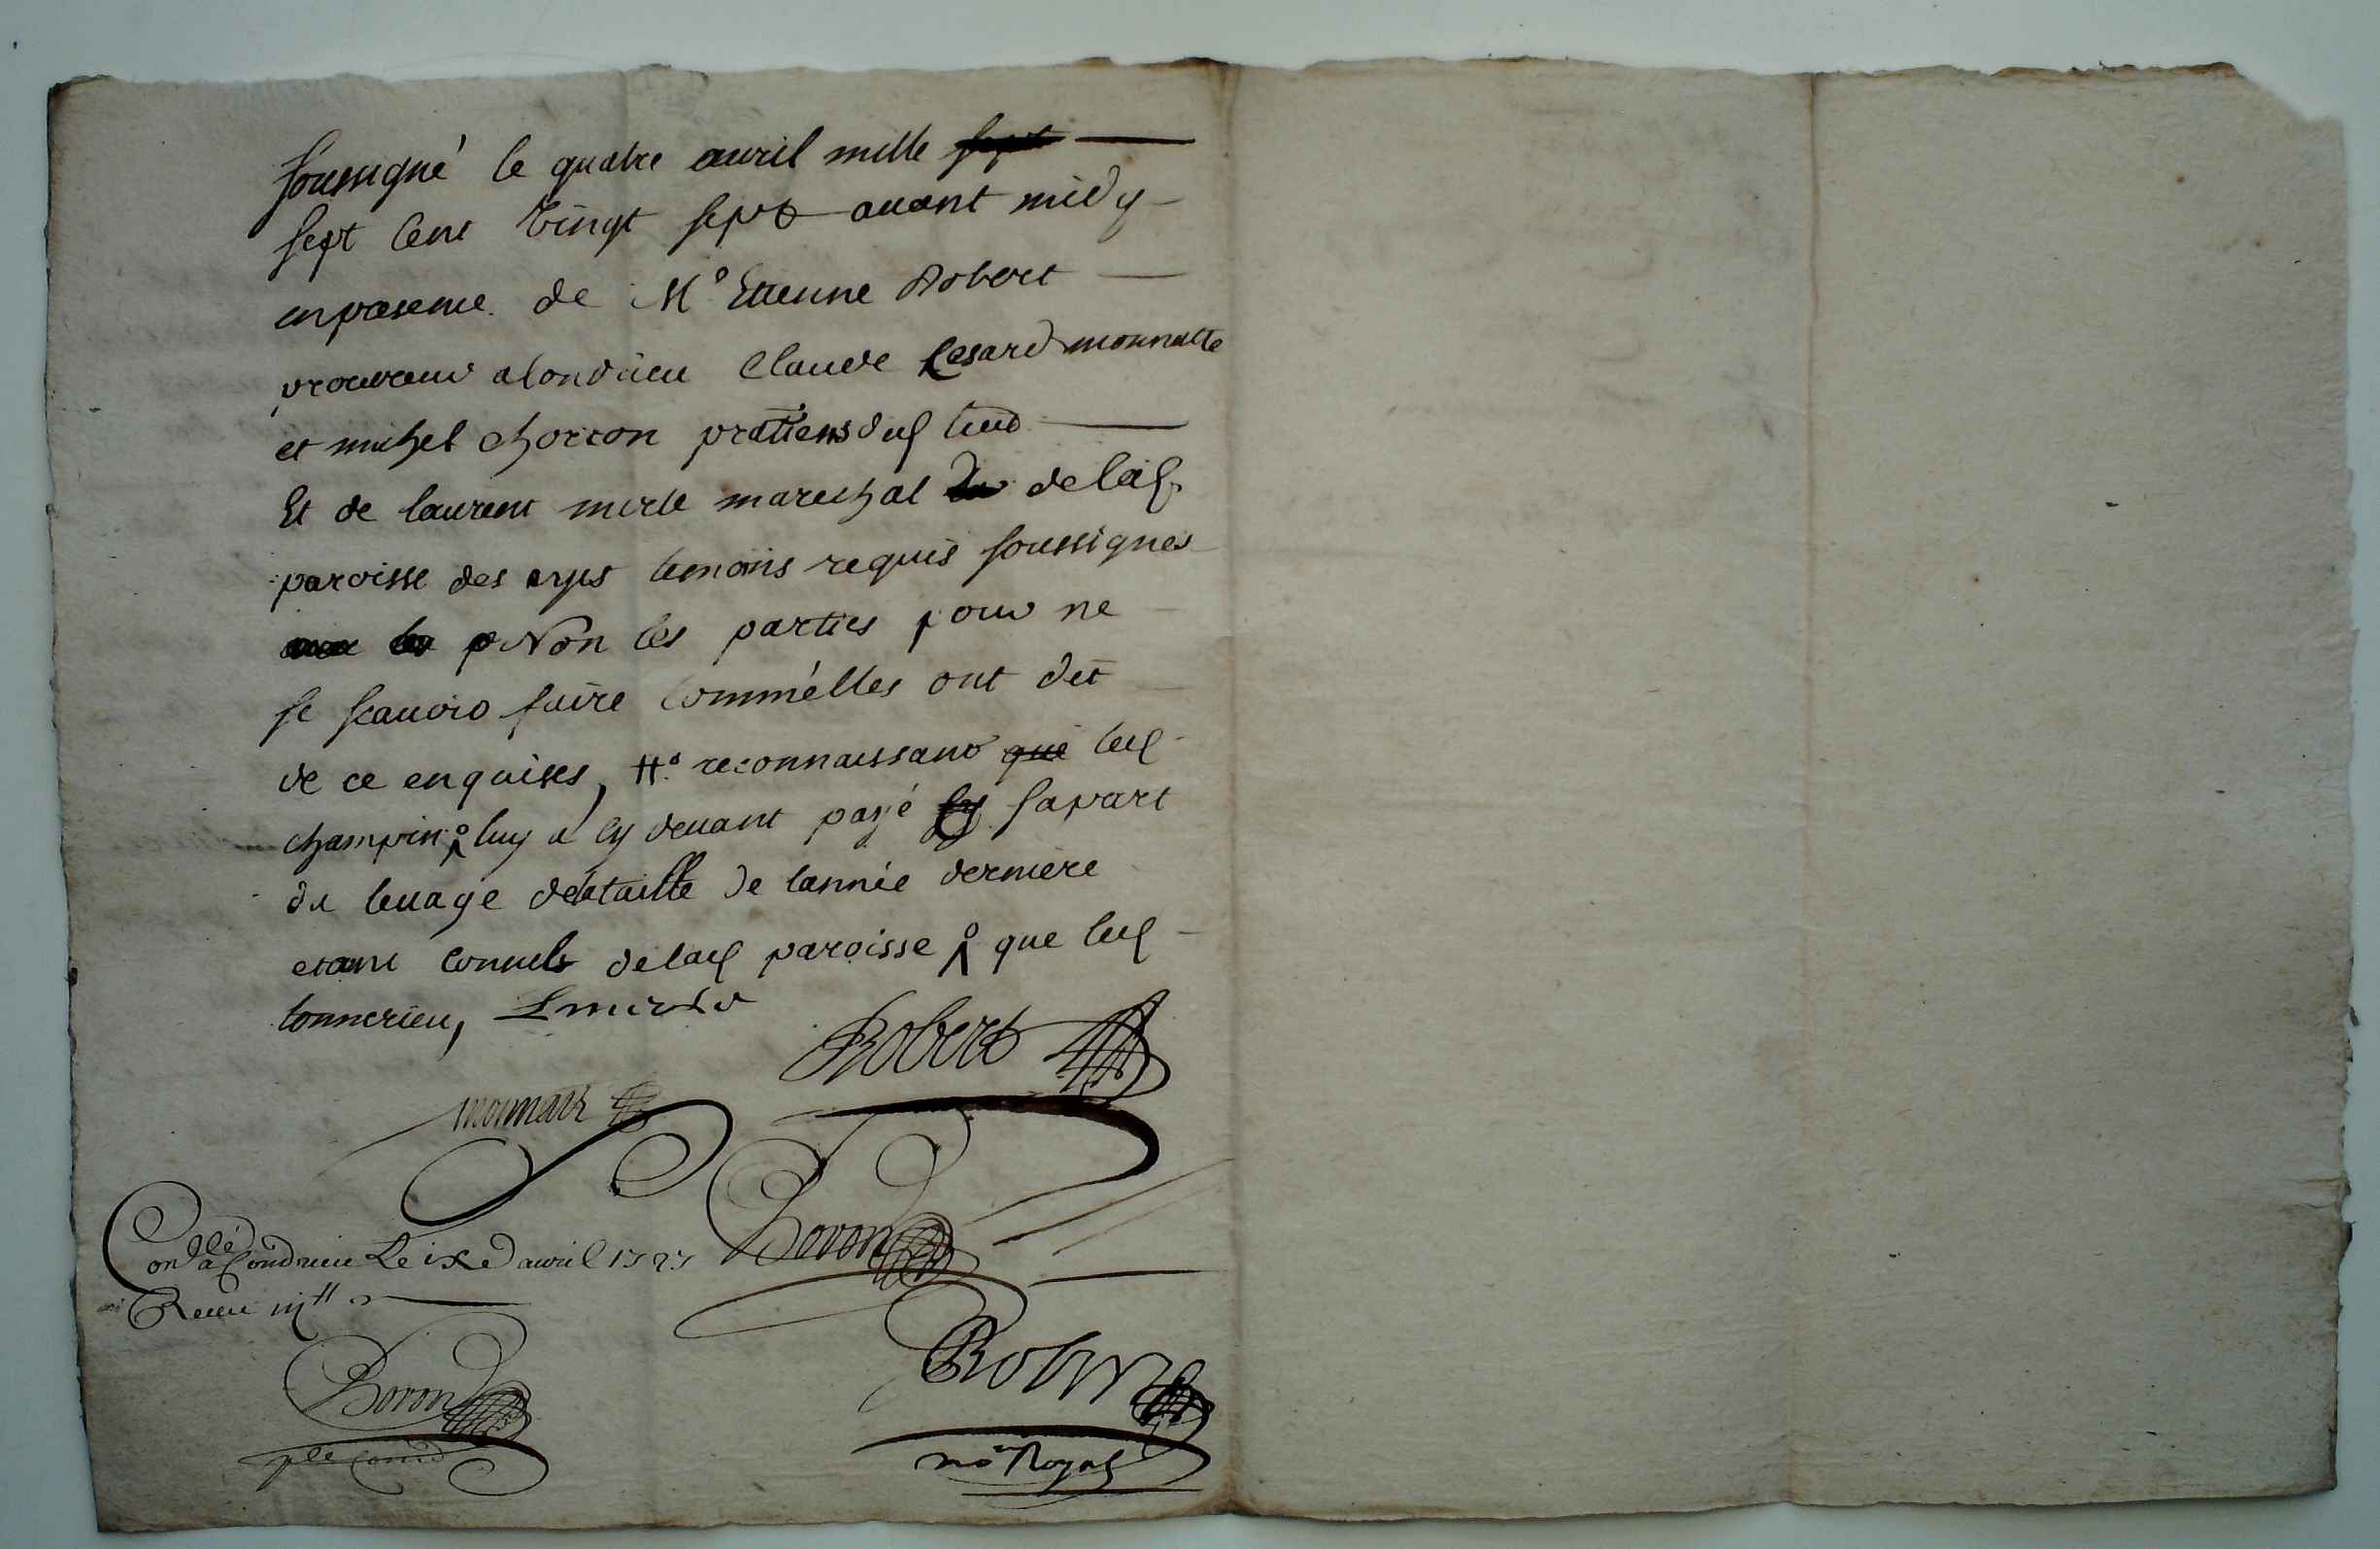 soussigné le quatre avril mille sept
sept cent vingt sept avant midy
en presence de Me Etienne Robert
procureur a Condrieu Claude Cesard monnatte
et michel chorron pratitiens dud lieud
Et de laurent merle marechal de lad
paroisse des ayes temoins requis soussignes
Non les parties pour ne
le scavoir faire comm'elles ont dit
de ce enquises, reconnaissant que led
champin luy a cy devant payé sa part
du levage de la taille de l'année derniere
etant consuls de lad paroisse que led
tonnerieu, L merle
Robert
monnatte
Boron
Conllé a Condrieu Le ixe avril 1727
Receu
Boron
Robert
no Royal